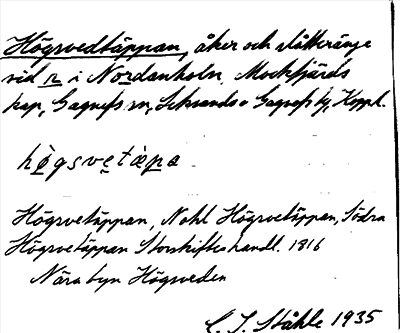 Högsvedtäppan, åker och slätteränge
vid n i Nordanholn, Mockfjärds
kap, Gagnefs sn, Leksands o Gagnefs tg, Koppb.
högsvetäpa
Högsvetäppan, Nohl Högsvetäppan, Södra
Högsvetäppan Storskifteshandl. 1816
Nära byn Högsveden
C. I. Ståhle 1935